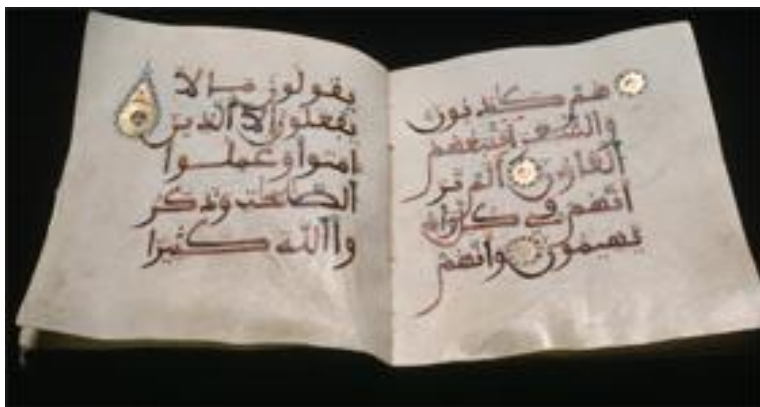 هم كاذبون
والشعرا يتبعهم
الغاون الم تر
انهم في كل واد
يهيمون وانهم
يقولون ما لا
يفعلون الا الذين
امنوا وعملوا
الصالحات وذكر
وا الله كثيرا